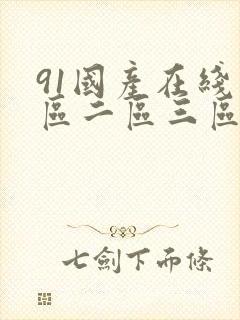 91國產在綫
區二區三區
七劍下而條